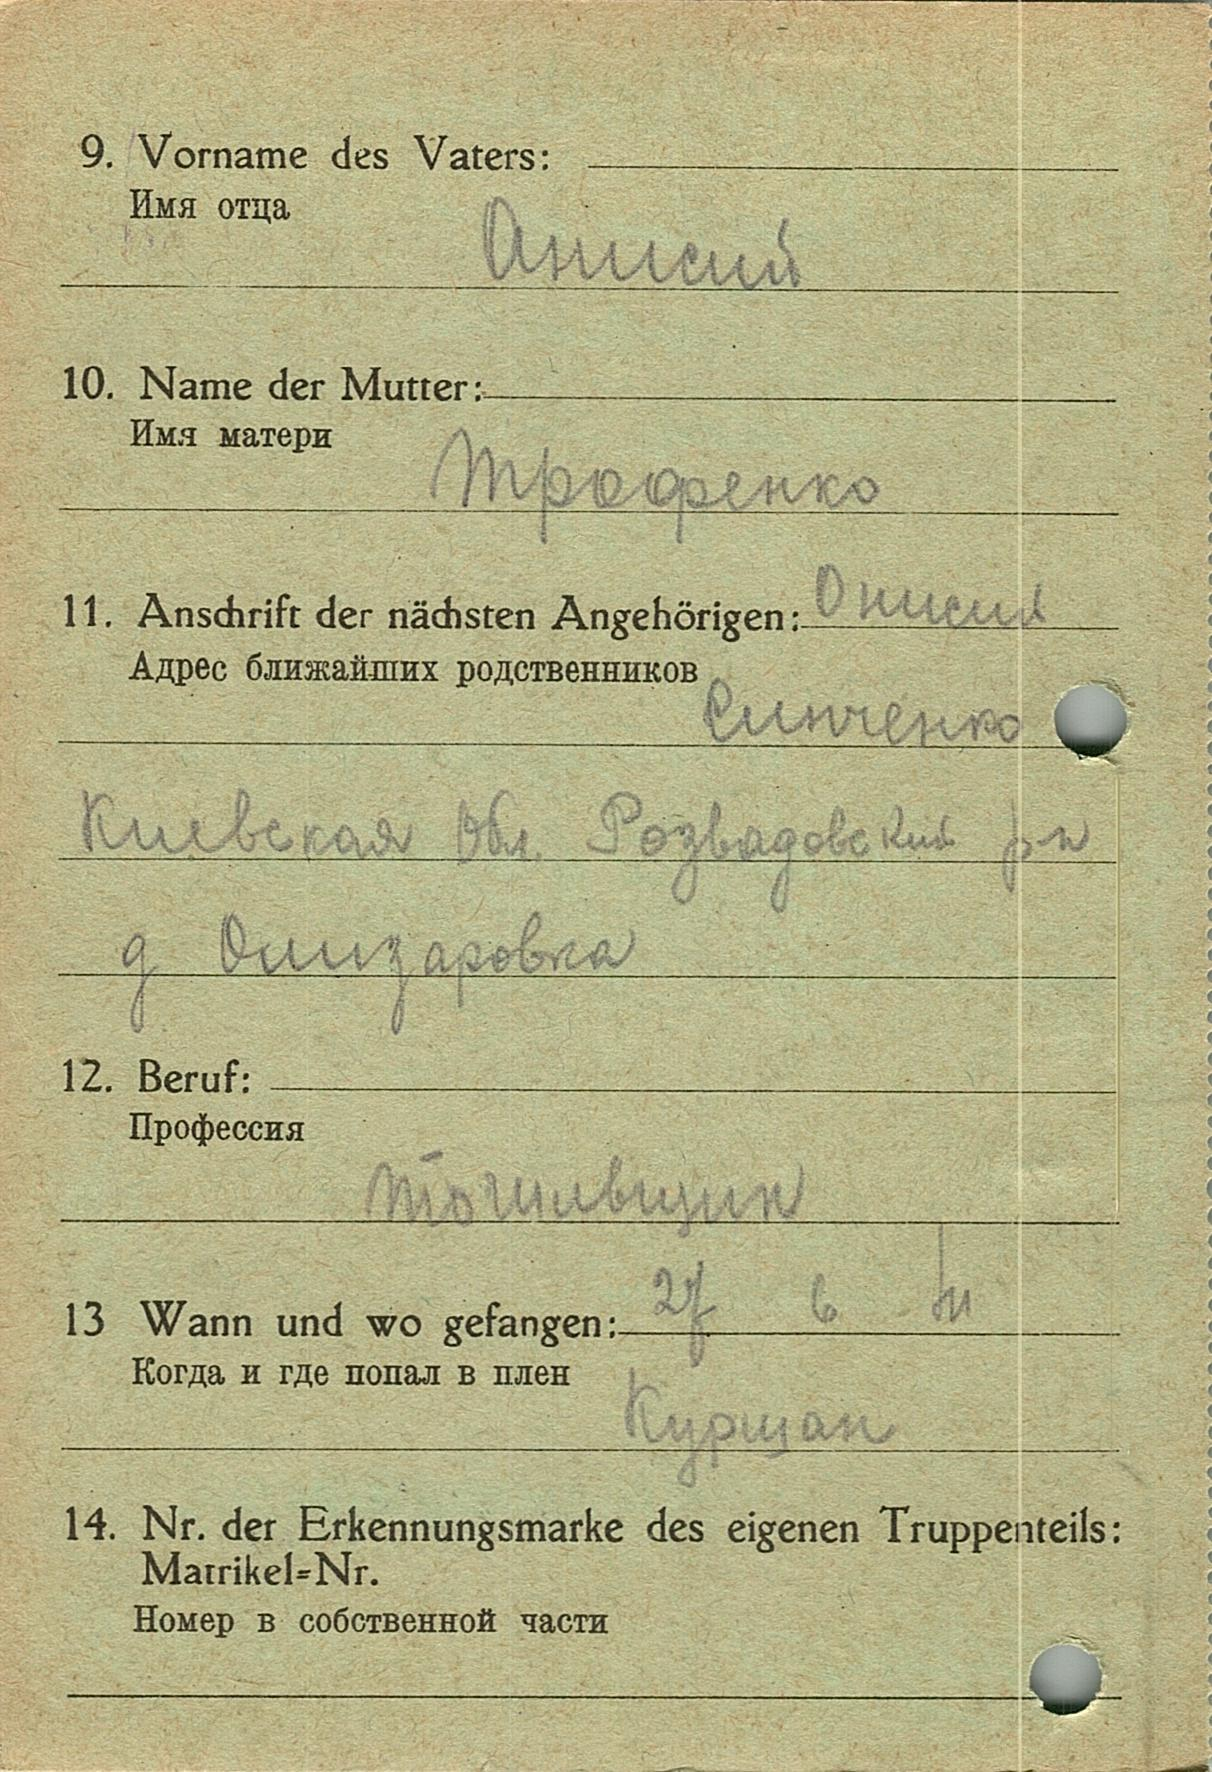 9. Vorname des Vaters:
Имя отца
Анисий
10. Name der Mutter:
Имя матери
Трофенко
11. Anschrift der nächsten Angehörigen: Онисий
Адрес ближайших родственников
Синченко
Киевская Обл. Розвадовский р-н
д Олизаровка
12. Beruf:
Профессия
13 Wann und wo gefangen: 27 6
Когда и где попал в плен
14. Nr. der Erkennungsmarke des eigenen Truppenteils:
Matrikel=Nr.
Номер в собственной части